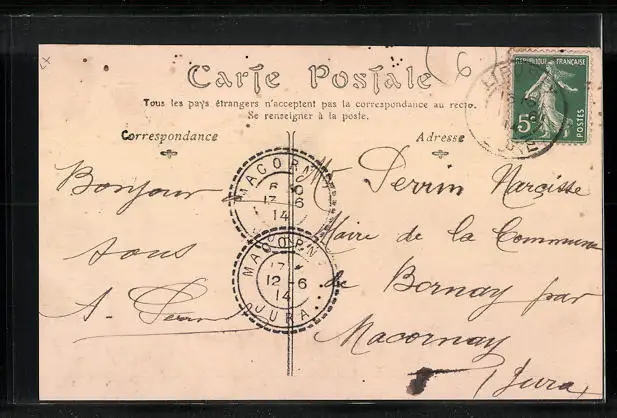 6
Carte Postale
Tous les pays étrangers n'acceptent pas la correspondance au recto.
Se renseigner à la poste.
Correspondance
Adresse
REPUBLIQUE FRANÇAISE
5c
POSTES
Bonjour
à tous
A. Perrin
MACORNAY
12 -6
14
MACORNAY
12 -6
14
JURA
Mr Perrin Narcisse
Maire de la Commune
de Bornay par
Macornay
(Jura)